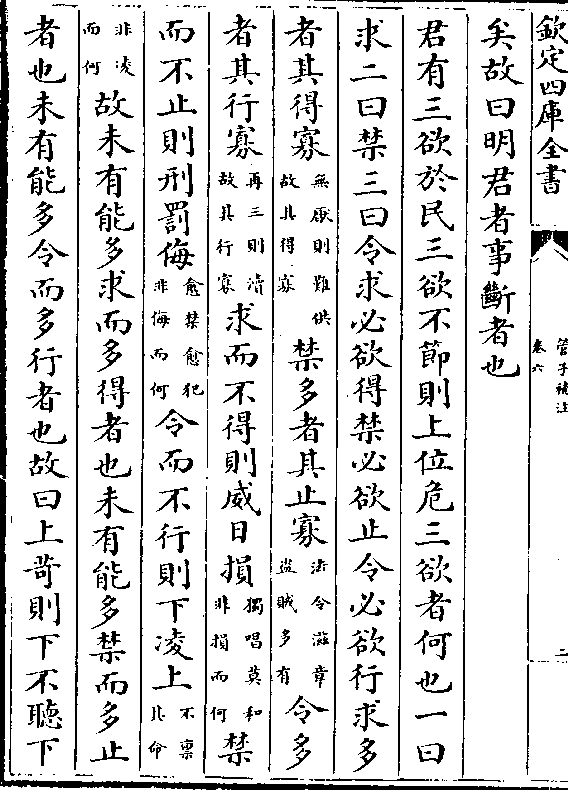 欽定四庫全書
管子補注
卷六
二
矣故曰明君者事斷者也
君有三欲於民三欲不節則上位危三欲者何也一曰
求二曰禁三曰令求必欲得禁必欲止令必欲行求多
者其得寡無厭則難供故其得寡禁多者其止寡法令滋章盗賊多有令多
者其行寡再三則瀆故其行寡求而不得則威日損獨唱莫和非損而何禁
而不止則刑罰侮愈禁愈犯非侮而何令而不行則下凌上不稟其命
非凌而何故未有能多求而多得者也未有能多禁而多止
者也未有能多令而多行者也故曰上苛則下不聽下